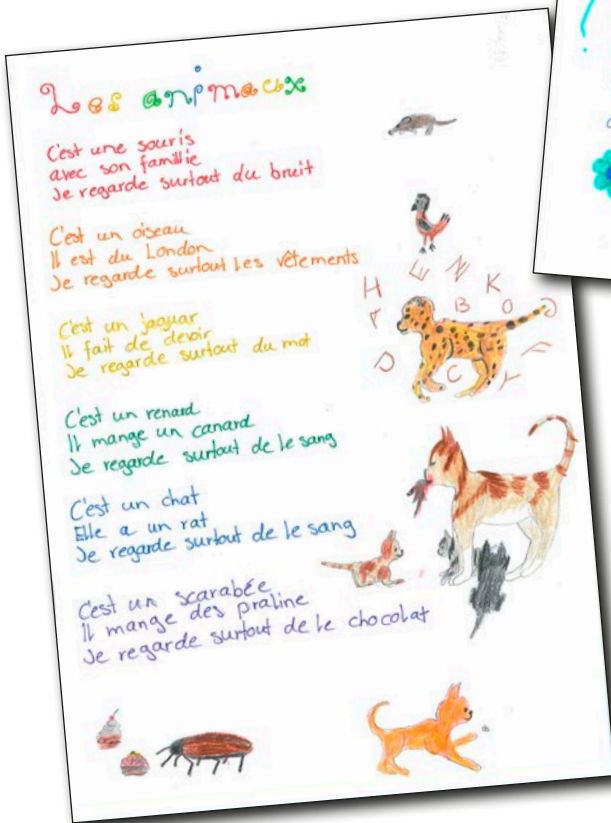 Les animaux
C'est une souris
avec son famillie
Je regarde surtout du bruit
C'est un oiseau
Il est du London
Je regarde surtout les vêtements
C'est un jaguar
Il fait de devoir
Je regarde surtout du mot
C'est un renard
Il mange un canard
Je regarde surtout de le sang
C'est un chat
Elle a un rat
Je regarde surtout de le sang
C'est un scarabée
Il mange des praline
Je regarde surtout de le chocolat